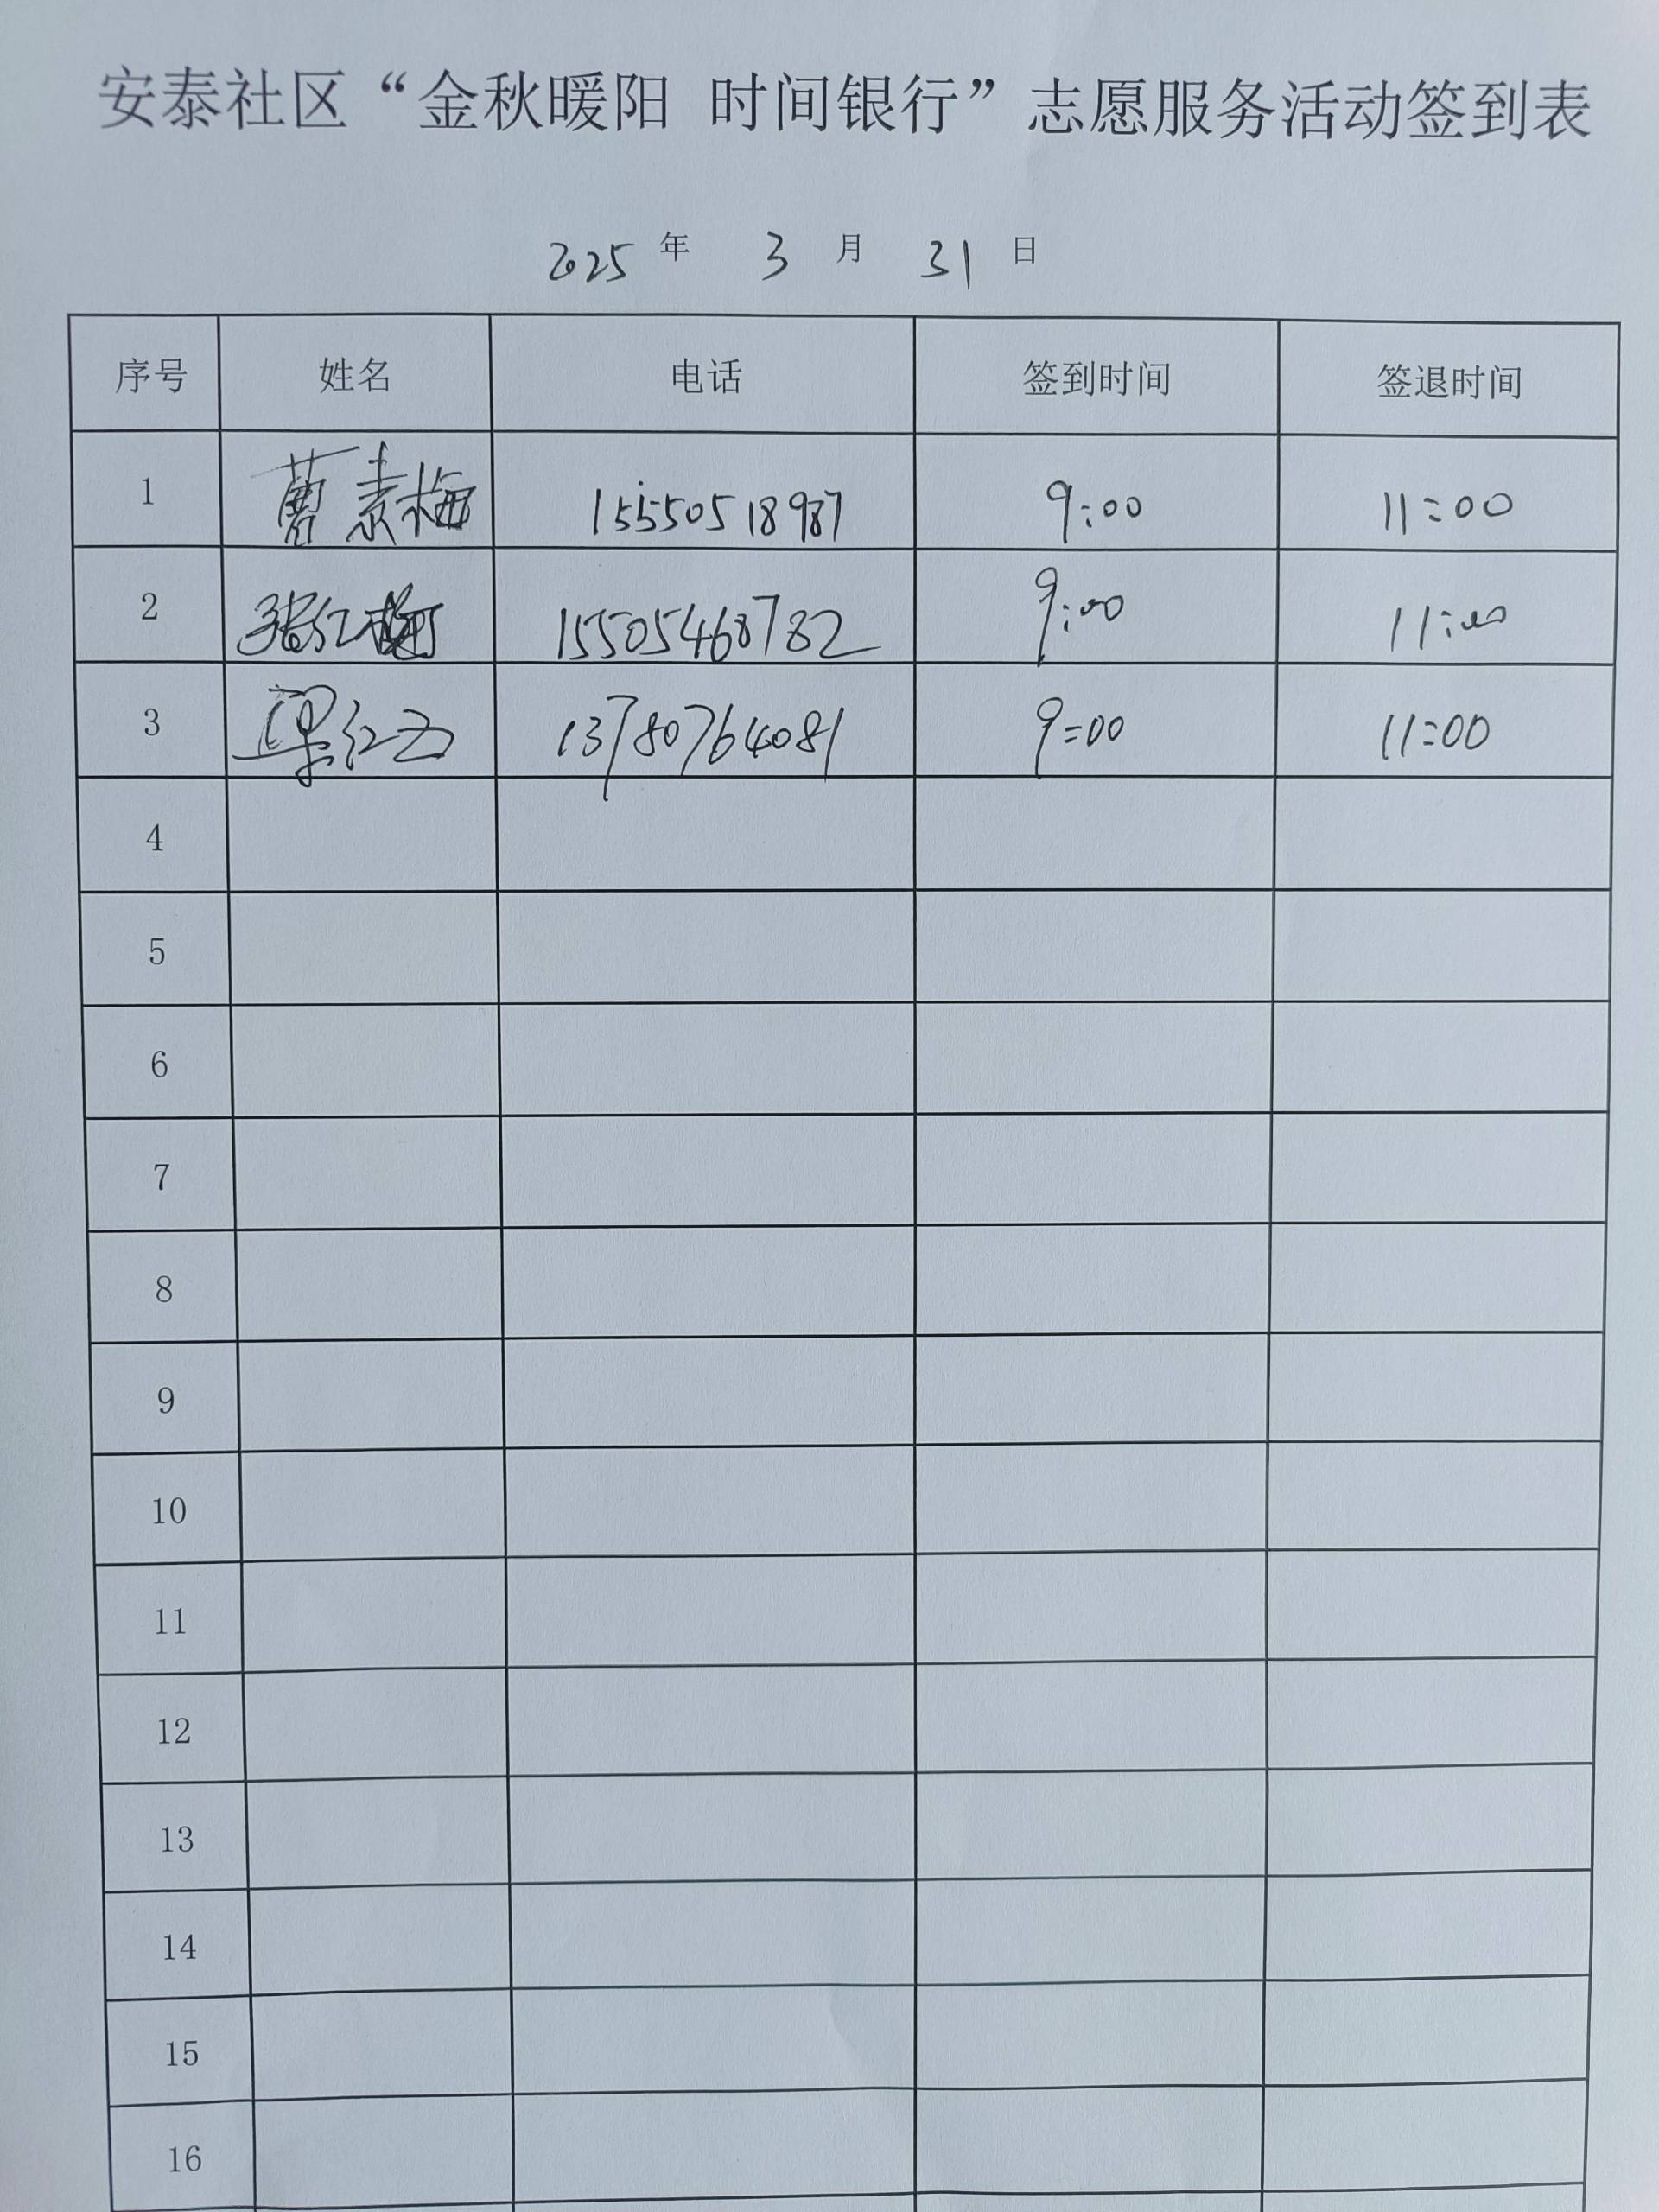 安泰社区“金秋暖阳 时间银行”志愿服务活动签到表
2025 年 3 月 31 日
序号 姓名 电话 签到时间 签退时间
1 曹素梅 15550518987 9:00 11:00
2 张红梅 15505468782 9:00 11:00
3 梁红 13780764081 9:00 11:00
4
5
6
7
8
9
10
11
12
13
14
15
16